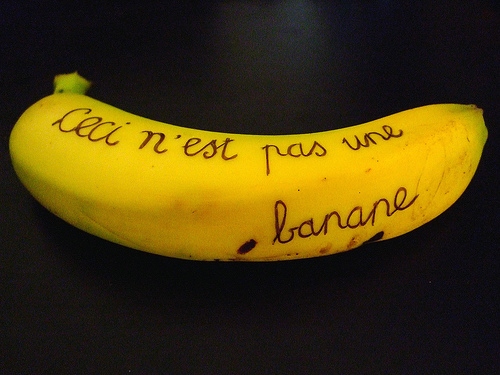 Ceci n'est pas une
banane